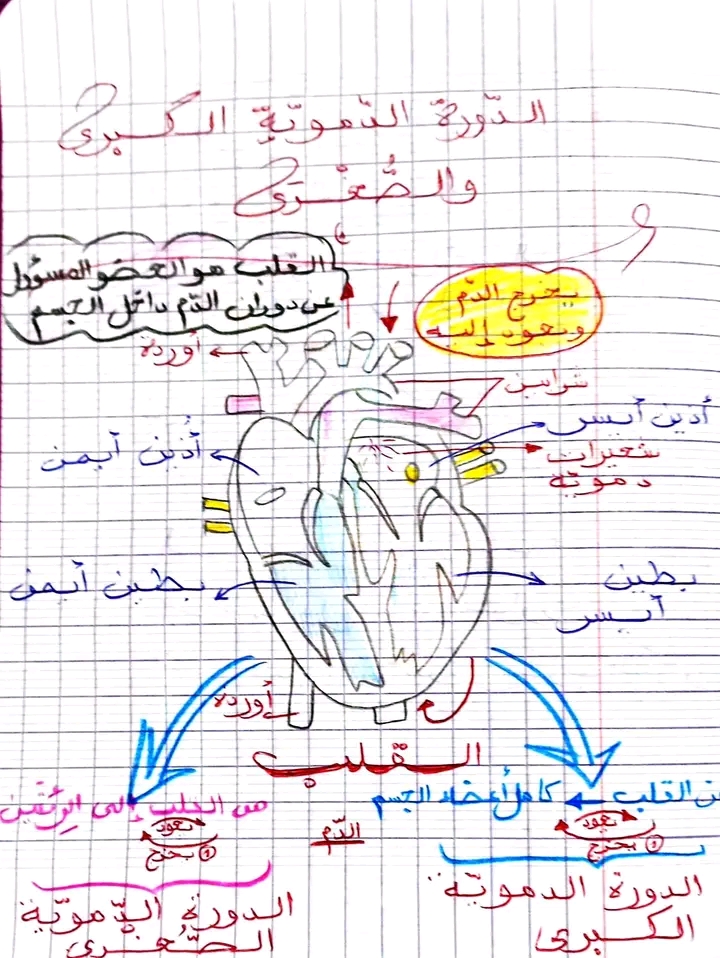 الدّورة الدّمويّة الكبرى
والصُّغْرَى
القلب هو العضو المسؤول
عن دوران الدّم داخل الجسم
يخرج الدّم
ويعود إليه
أوردة
شرايين
أذين أيسر
أُذين أيمن
شعيرات
دمويّة
بطين أيمن
بطين
أيسر
أوردة
القلب
من القلب كامل أعضاء الجسم
يعود
① يخرج
من القلب إلى الرئتين
يعود
① يخرج
الدّم
الدورة الدمويّة
الكبرى
الدورة الدّمويّة
الصُّغْرى